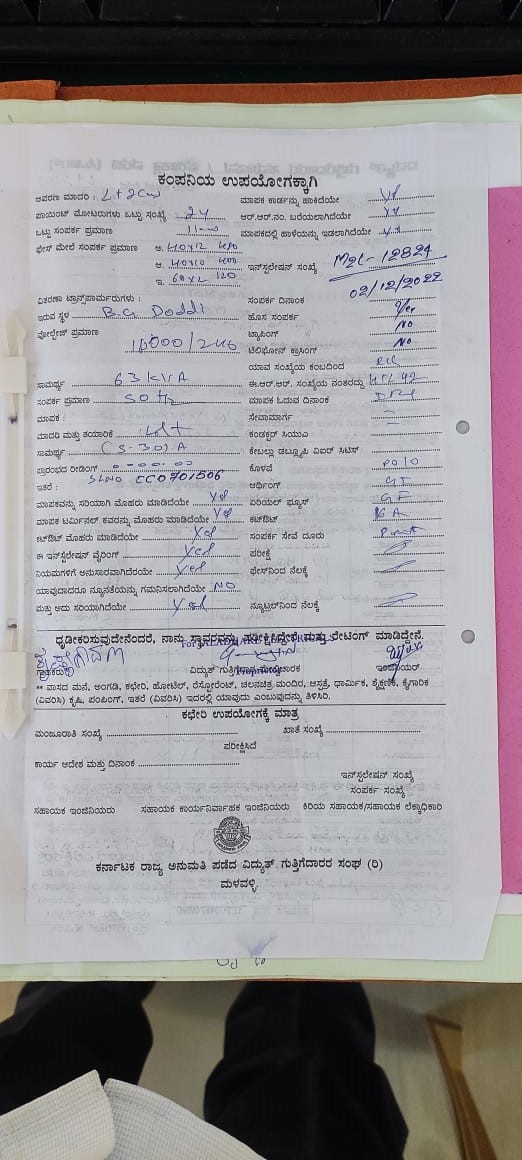 ಕಂಪನಿಯ ಉಪಯೋಗಕ್ಕಾಗಿ
ಆವರಣ ಮಾದರಿ : L+2Cw
ಮಾಪಕ ಕಾರ್ಡನ್ನು ಹಾಕಿದೆಯೇ
ಪಾಯಿಂಟ್ ಮೋಟರುಗಳು ಒಟ್ಟು ಸಂಖ್ಯೆ 24
ಆರ್.ಆರ್.ನಂ. ಬರೆಯಲಾಗಿದೆಯೇ
ಒಟ್ಟು ಸಂಪರ್ಕ ಪ್ರಮಾಣ
ಮಾಪಕದಲ್ಲಿ ಹಾಳೆಯನ್ನು ಇಡಲಾಗಿದೆಯೇ
ಫೇಸ್ ಮೇಲೆ ಸಂಪರ್ಕ ಪ್ರಮಾಣ ಅ. 40X12
ಆ. 40X10 400
ಇನ್‌ಸ್ಟಲೇಷನ್ ಸಂಖ್ಯೆ M2L-12824
ಇ. 60X2 120
02/12/2022
ವಿತರಣಾ ಟ್ರಾನ್ಸ್‌ಫಾರ್ಮರುಗಳು :
ಸಂಪರ್ಕ ದಿನಾಂಕ
ಇರುವ ಸ್ಥಳ B.G Doddi
ಹೊಸ ಸಂಪರ್ಕ Yes
ವೋಲ್ಟೇಜ್ ಪ್ರಮಾಣ
ಟ್ಯಾಪಿಂಗ್ NO
ಟೆಲಿಫೋನ್ ಕ್ರಾಸಿಂಗ್ NO
ಯಾವ ಸಂಖ್ಯೆಯ ಕಂಬದಿಂದ
ಸಾಮರ್ಥ್ಯ 63 kVA
ಈ.ಆರ್.ಆರ್. ಸಂಖ್ಯೆಯ ನಂತರದ್ದು
ಸಂಪರ್ಕ ಪ್ರಮಾಣ 50 Hz
ಮಾಪಕ ಓದುವ ದಿನಾಂಕ
ಮಾಪಕ :
ಸೇವಾಮಾರ್ಗ
ಮಾದರಿ ಮತ್ತು ತಯಾರಿಕೆ L&T
ಕಂಡಕ್ಟರ್ ಸಿಯುಎ
ಸಾಮರ್ಥ್ಯ (5-30) A
ಕೇಬಲ್ಲು ಡಬ್ಲ್ಯೂಪಿ ವಿಐರ್ ಸಿಟಿಸ್
ಪ್ರಾರಂಭದ ರೀಡಿಂಗ್
ಕೊಳವೆ
ಇತರೆ : SLNO CC0701506
ಅರ್ಥಿಂಗ್ GI
ಮಾಪಕವನ್ನು ಸರಿಯಾಗಿ ಮೊಹರು ಮಾಡಿದೆಯೇ Yes
ಏರಿಯಲ್ ಫ್ಯೂಸ್
ಮಾಪಕ ಟರ್ಮಿನಲ್ ಕವರನ್ನು ಮೊಹರು ಮಾಡಿದೆಯೇ Yes
ಕಟ್‌ಔಟ್ 16 A
ಕಟ್‌ಔಟ್ ಮೊಹರು ಮಾಡಿದೆಯೇ Yes
ಸಂಪರ್ಕ ಸೇವೆ ದೂರು
ಈ ಇನ್‌ಸ್ಟಲೇಷನ್ ವೈರಿಂಗ್ Yes
ಪರೀಕ್ಷೆ
ನಿಯಮಗಳಿಗೆ ಅನುಸಾರವಾಗಿದೆಯೇ Yes
ಫೇಸ್‌ನಿಂದ ನೆಲಕ್ಕೆ
ಯಾವುದಾದರೂ ನ್ಯೂನತೆಯನ್ನು ಗಮನಿಸಲಾಗಿದೆಯೇ NO
ಮತ್ತು ಅದು ಸರಿಯಾಗಿದೆಯೇ Yes
ನ್ಯೂಟ್ರಲ್‌ನಿಂದ ನೆಲಕ್ಕೆ
ಧೃಡೀಕರಿಸುವುದೇನೆಂದರೆ, ನಾನು ಸ್ಥಾವರವನ್ನು ಪರೀಕ್ಷಿಸಿದ್ದೇನೆ ಮತ್ತು ರೇಟಿಂಗ್ ಮಾಡಿದ್ದೇನೆ.
ಗ್ರಾಹಕರು
ವಿದ್ಯುತ್ ಗುತ್ತಿಗೆದಾರ ಮೇಲ್ವಿಚಾರಕ
ಇಂಜಿನಿಯರ್
** ವಾಸದ ಮನೆ, ಅಂಗಡಿ, ಕಛೇರಿ, ಹೋಟೆಲ್, ರೆಸ್ಟೋರೆಂಟ್, ಚಲನಚಿತ್ರ ಮಂದಿರ, ಆಸ್ಪತ್ರೆ, ಧಾರ್ಮಿಕ, ಶೈಕ್ಷಣಿಕ, ಕೈಗಾರಿಕೆ
(ವಿವರಿಸಿ) ಕೃಷಿ, ಪಂಪಿಂಗ್, ಇತರೆ (ವಿವರಿಸಿ) ಇದರಲ್ಲಿ ಯಾವುದು ಎಂಬುವುದನ್ನು ತಿಳಿಸಿರಿ.
ಕಛೇರಿ ಉಪಯೋಗಕ್ಕೆ ಮಾತ್ರ
ಮಂಜೂರಾತಿ ಸಂಖ್ಯೆ
ಖಾತೆ ಸಂಖ್ಯೆ
ಪರೀಕ್ಷಿಸಿದೆ
ಕಾರ್ಯ ಆದೇಶ ಮತ್ತು ದಿನಾಂಕ
ಇನ್‌ಸ್ಟಲೇಷನ್ ಸಂಖ್ಯೆ
ಸಂಪರ್ಕ ಸಂಖ್ಯೆ
ಸಹಾಯಕ ಇಂಜಿನಿಯರು ಸಹಾಯಕ ಕಾರ್ಯನಿರ್ವಾಹಕ ಇಂಜಿನಿಯರು ಕಿರಿಯ ಸಹಾಯಕ/ಸಹಾಯಕ ಲೆಕ್ಕಾಧಿಕಾರಿ
ಕರ್ನಾಟಕ ರಾಜ್ಯ ಅನುಮತಿ ಪಡೆದ ವಿದ್ಯುತ್ ಗುತ್ತಿಗೆದಾರರ ಸಂಘ (ರಿ)
ಮಳವಳ್ಳಿ.